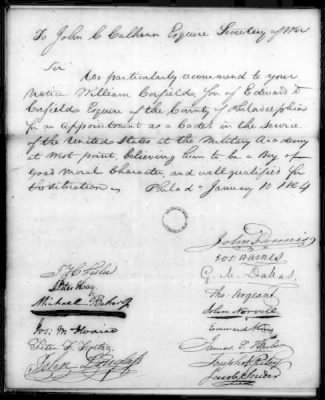 To John C Calhoun Esquire Secretary of War
Sir
We particularly recommend to your
notice William Corfield Son of Edward
Corfield Esquire of the County of Philadelphia
for an appointment as a Cadet in the Service
of the United States at the Military Academy
at West point, believing him to be a Boy of
Good Moral Character, and well qualified for
situation
Philad January 10 1824
John
Jos. Barnes
Peter Hay
G. M. Dallas
Michael
Tho. Sergeant
John Norvell
Jos: McIlvaine
Edward King
Peter
James
John Douglass
Joseph
Jacob Souder